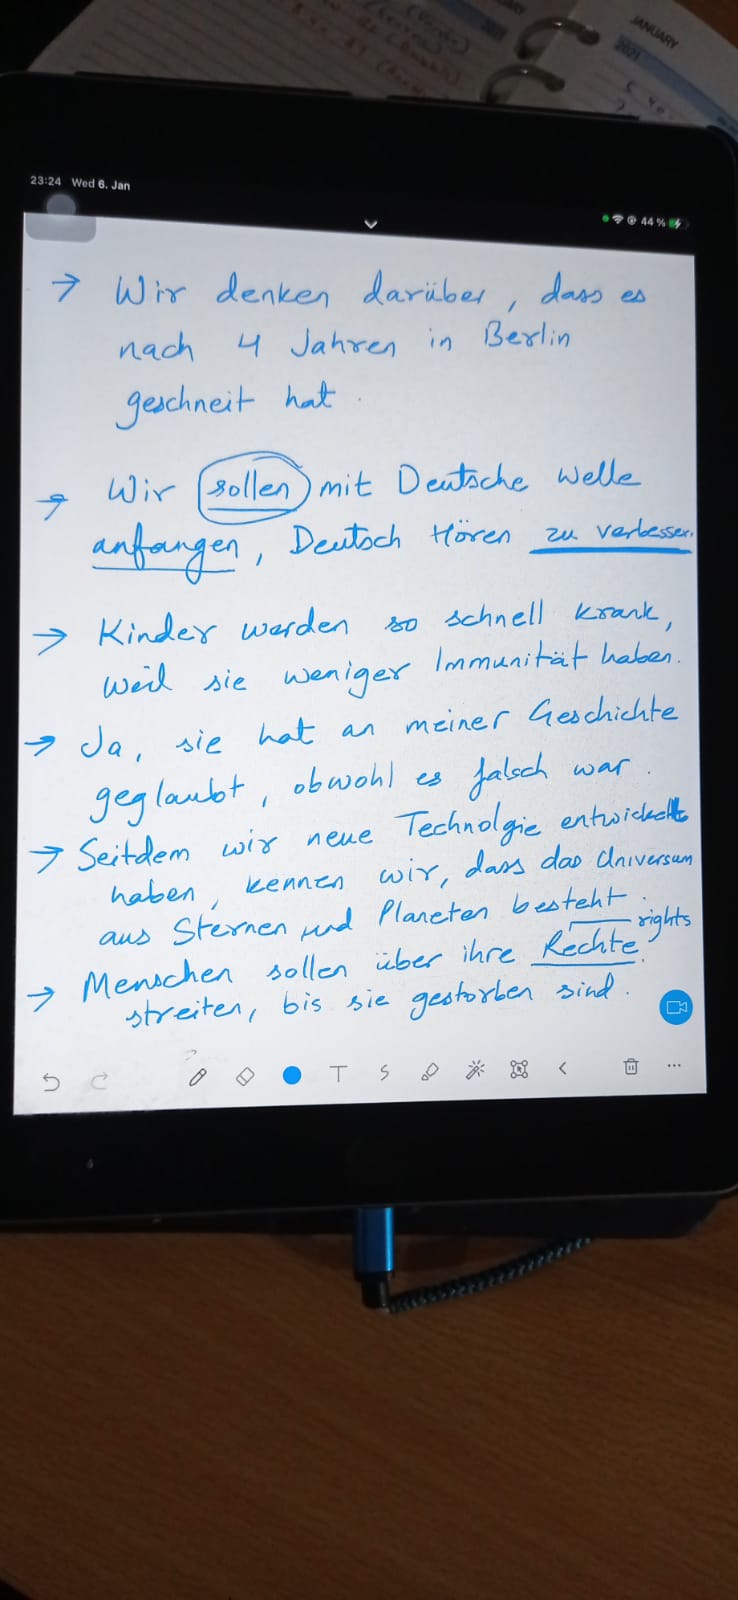 JANUARY
2021
23:24 Wed 6. Jan
44 %
→ Wir denken darüber, dass es
nach 4 Jahren in Berlin
geschneit hat.
→ Wir sollen mit Deutsche Welle
anfangen, Deutsch Hören zu verbessern.
→ Kinder werden so schnell krank,
weil sie weniger Immunität haben.
→ Ja, sie hat an meiner Geschichte
geglaubt, obwohl es falsch war.
→ Seitdem wir neue Technolgie entwickelt
haben, kennen wir, dass das Universum
aus Sternen und Planeten besteht.
rights
→ Menschen sollen über ihre Rechte
streiten, bis sie gestorben sind.
T